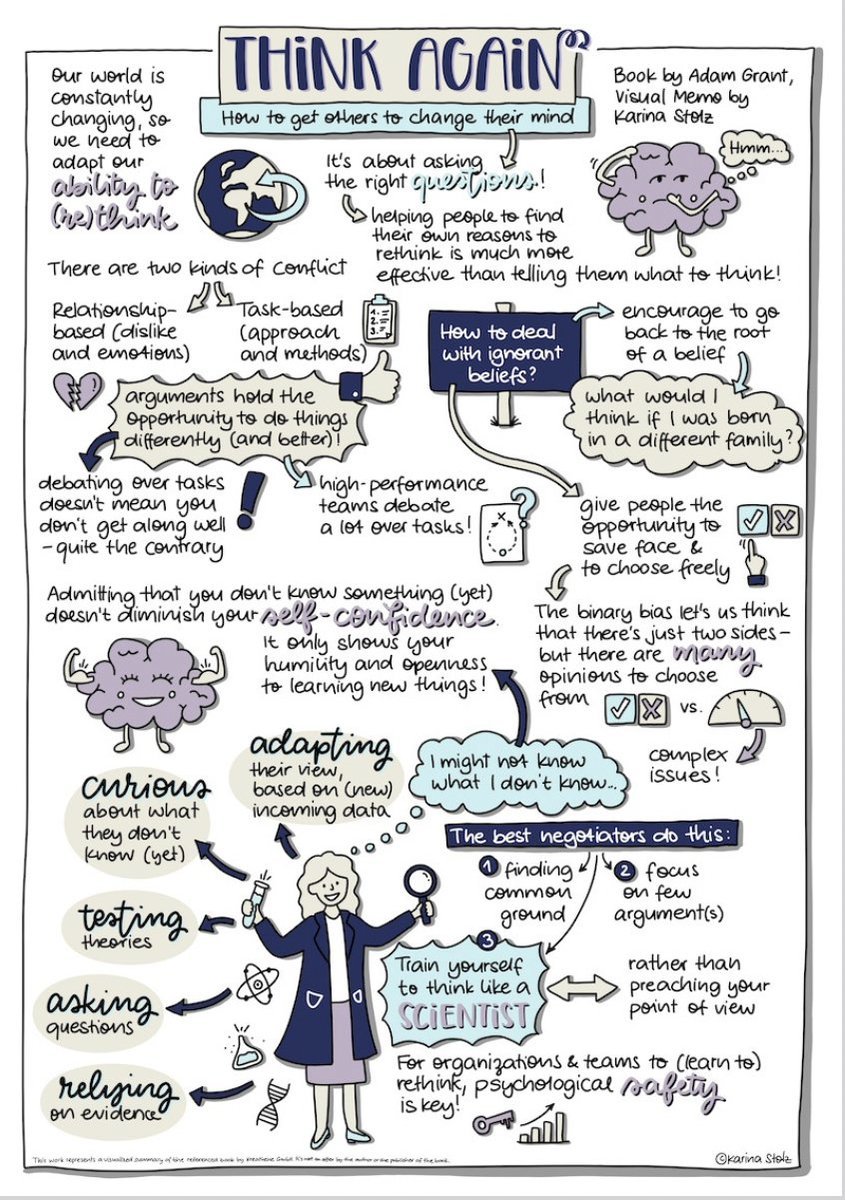 THINK AGAIN
How to get others to change their mind
Our world is
constantly
changing, so
we need to
adapt our
ability to
(re)think
Book by Adam Grant,
Visual Memo by
Karina Stolz
Hmm...
It's about asking
the right questions!
helping people to find
their own reasons to
rethink is much more
effective than telling them what to think!
There are two kinds of conflict
Relationship-
based (dislike
and emotions)
Task-based
(approach
and methods)
1.
2.
3.
arguments hold the
opportunity to do things
differently (and better)!
debating over tasks
doesn't mean you
don't get along well
- quite the contrary
!
high-performance
teams debate
a lot over tasks!
x
?
How to deal
with ignorant
beliefs?
encourage to go
back to the root
of a belief
what would I
think if I was born
in a different family?
give people the
opportunity to
save face &
to choose freely
The binary bias let's us think
that there's just two sides -
but there are many
opinions to choose
from
vs.
complex
issues!
Admitting that you don't know something (yet)
doesn't diminish your self-confidence.
It only shows your
humility and openness
to learning new things!
I might not know
what I don't know...
adapting
their view,
based on (new)
incoming data
curious
about what
they don't
know (yet)
testing
theories
asking
questions
relying
on evidence
The best negotiators do this:
1 finding
common
ground
2 focus
on few
argument(s)
3
Train yourself
to think like a
SCIENTIST
rather than
preaching your
point of view
For organizations & teams to (learn to)
rethink, psychological safety
is key!
This work represents a visualized summary of the referenced book by
©Karina Stolz